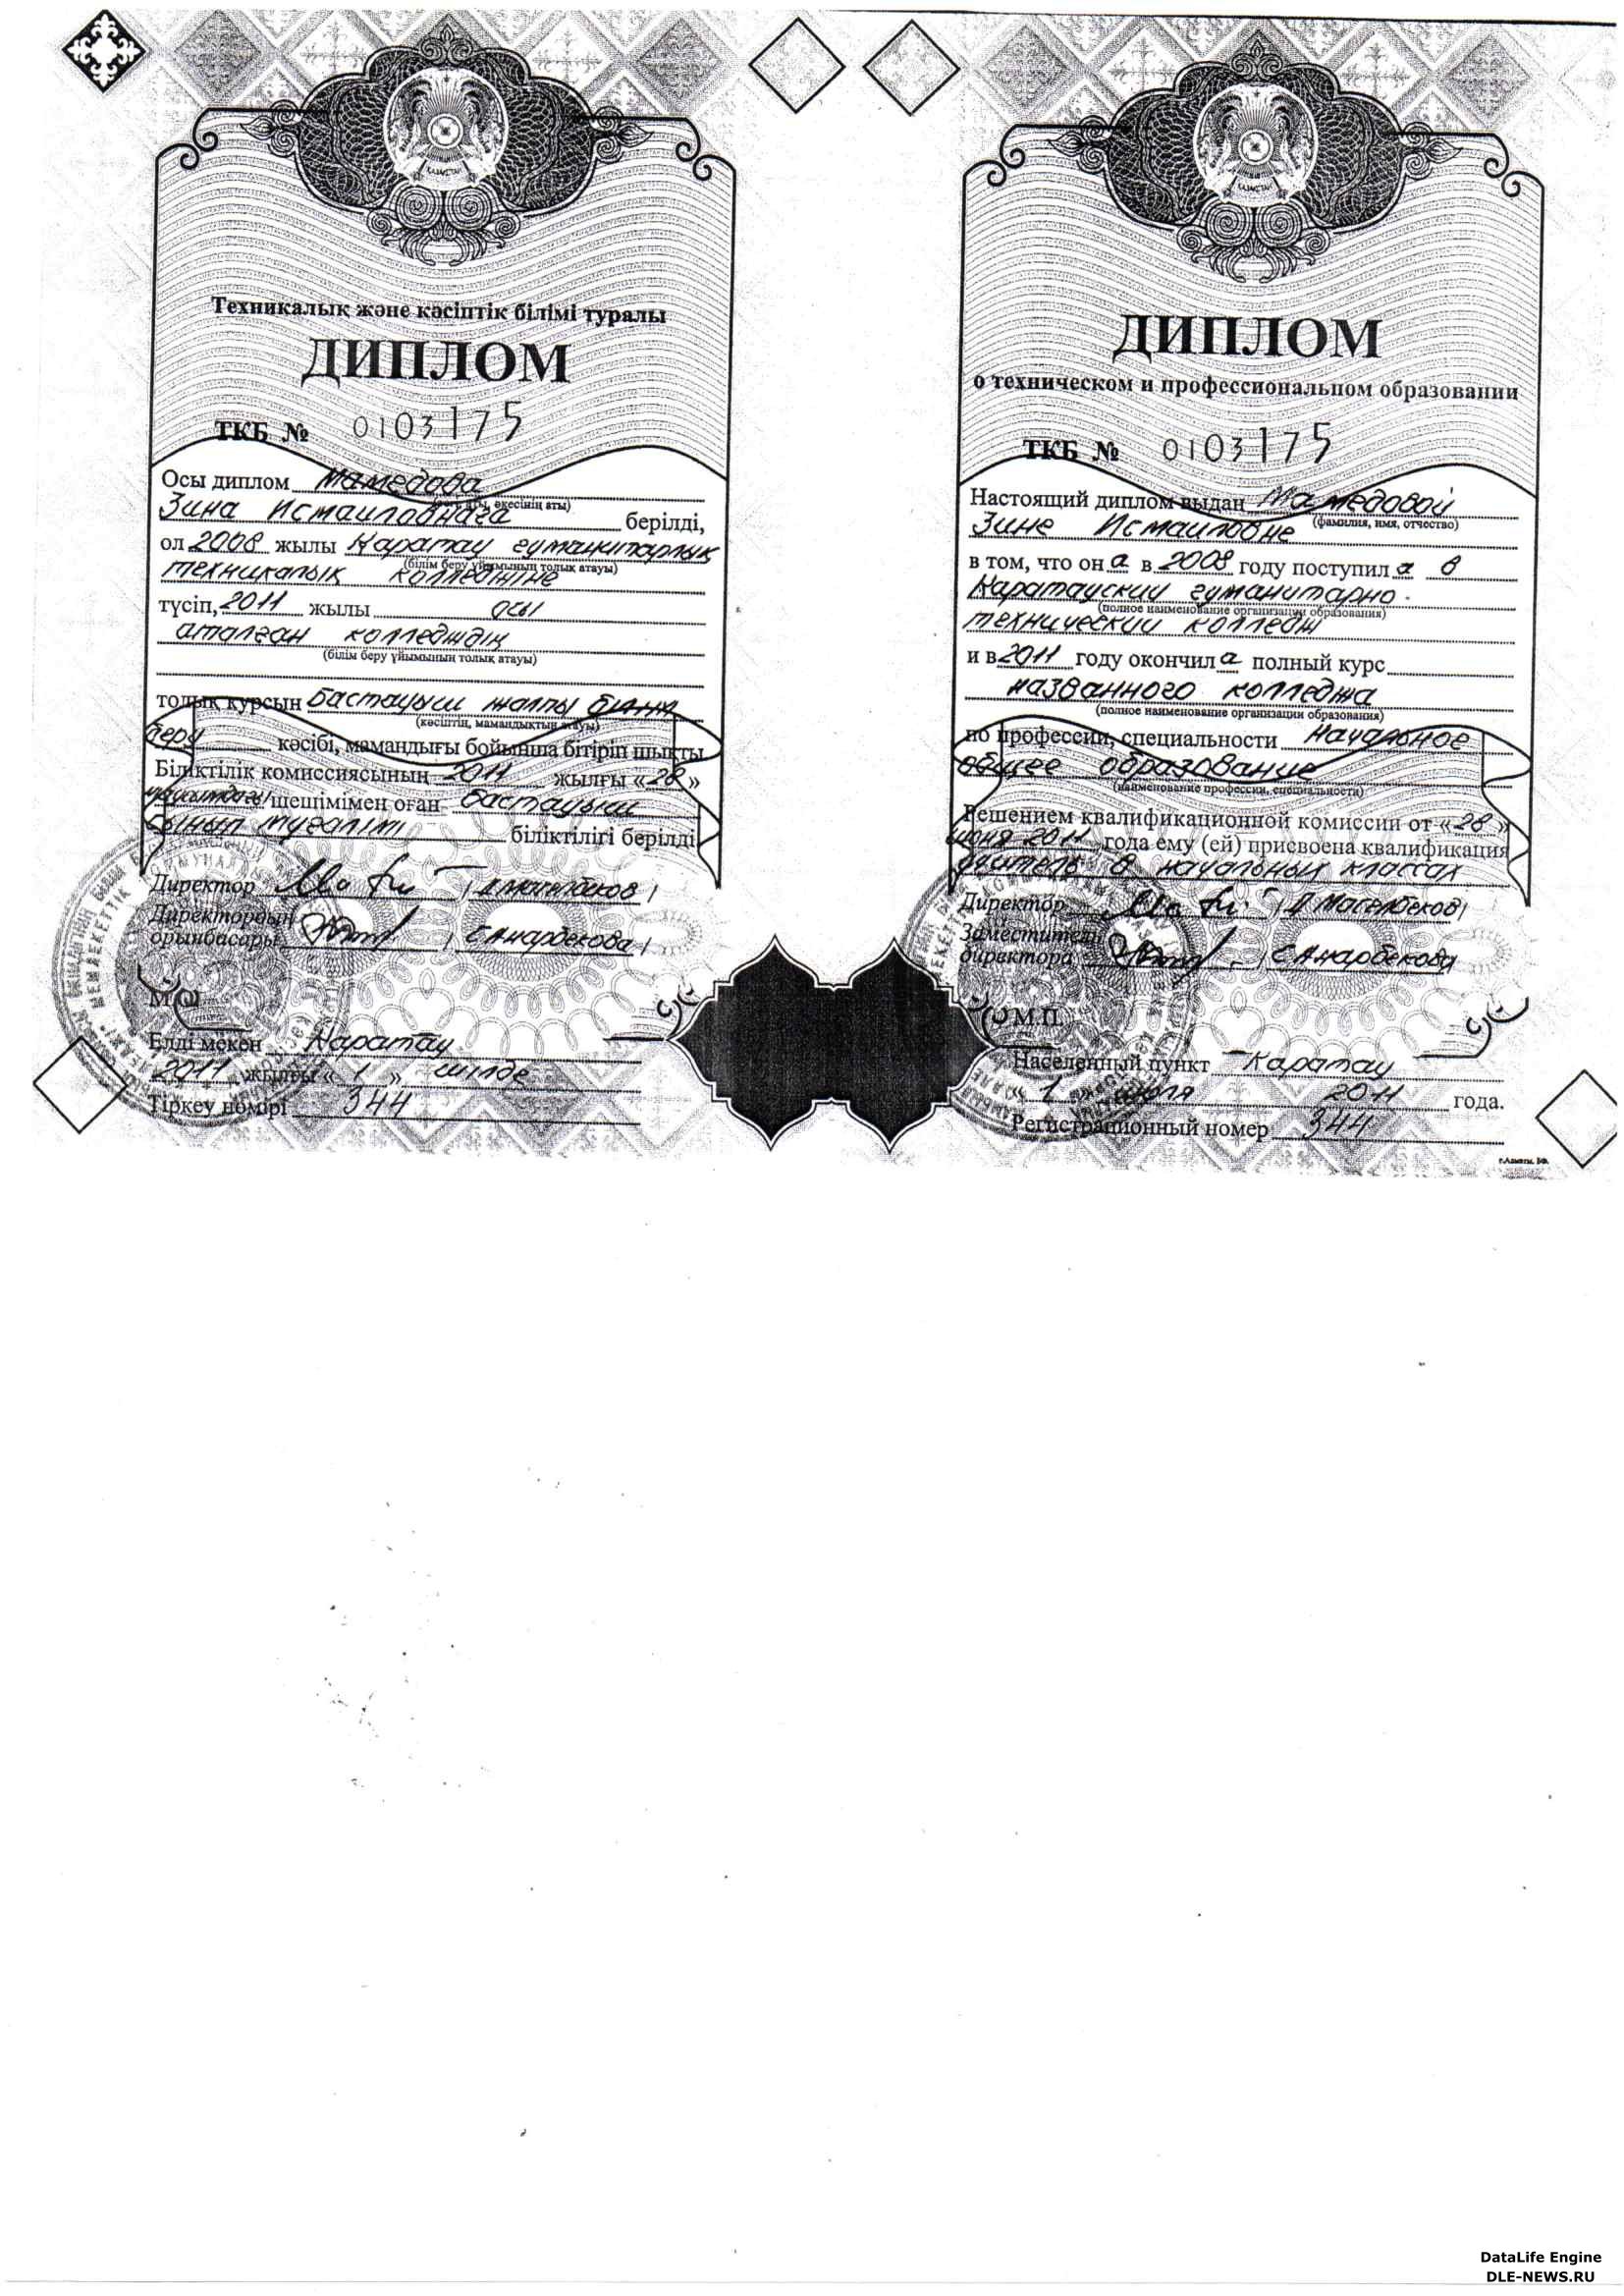 Техникалық және кәсіптік білімі туралы
ДИПЛОМ
ТКБ № 0103175
Осы диплом Мамедова
Зина Исмаиловнаға берілді,
ол 2008 жылы Қаратау гуманитарлық
(білім беру ұйымының толық атауы)
техникалық колледжіне
түсіп, 2011 жылы осы
аталған колледждің
(білім беру ұйымының толық атауы)
толық курсын Бастауыш жалпы білім
(кәсіптің, мамандықтың атауы)
беру кәсібі, мамандығы бойынша бітіріп шықты
Біліктілік комиссиясының 2011 жылғы «28»
шешімімен оған бастауыш
сынып мұғалімі біліктілігі берілді
Директор
Директордың
орынбасары Е Анарбекова
М.О.
Елді мекен Қаратау
2011 жылғы « 1 » шілде
Тіркеу нөмірі 344
ДИПЛОМ
о техническом и профессиональном образовании
ТКБ № 0103175
Настоящий диплом выдан Мамедовой
(фамилия, имя, отчество)
Зине Исмаиловне
в том, что он а в 2008 году поступил а в
Каратауский гуманитарно-
(полное наименование организации образования)
технический колледж
и в 2011 году окончил а полный курс
названного колледжа
(полное наименование организации образования)
по профессии, специальности Начальное
общее образование
(наименование профессии, специальности)
Решением квалификационной комиссии от «28»
июня 2011 года ему (ей) присвоена квалификация
учитель в начальных классах
Директор
Заместитель
директора Е Анарбекова
М.П.
Населенный пункт Каратау
« 1 » июля 2011 года.
Регистрационный номер 344
DataLife Engine
DLE-NEWS.RU